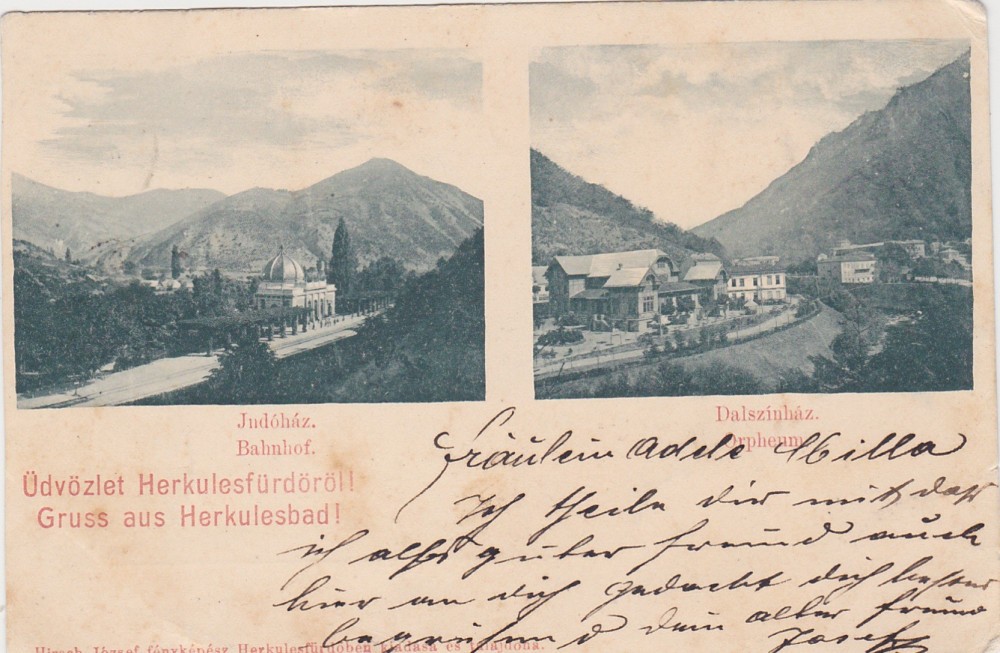 Indóház.
Bahnhof.
Dalszínház.
Orpheum.
Üdvözlet Herkulesfürdöröl!
Gruss aus Herkulesbad!
Fräulein Adele Milla
Ich theile dir mit daß
ich als guter freund auch
hier an dich gedacht dich bestens
begrüßend dein alter freund
Josef
Hirsch József fényképész Herkulesfürdőben kiadása és tulajdona.